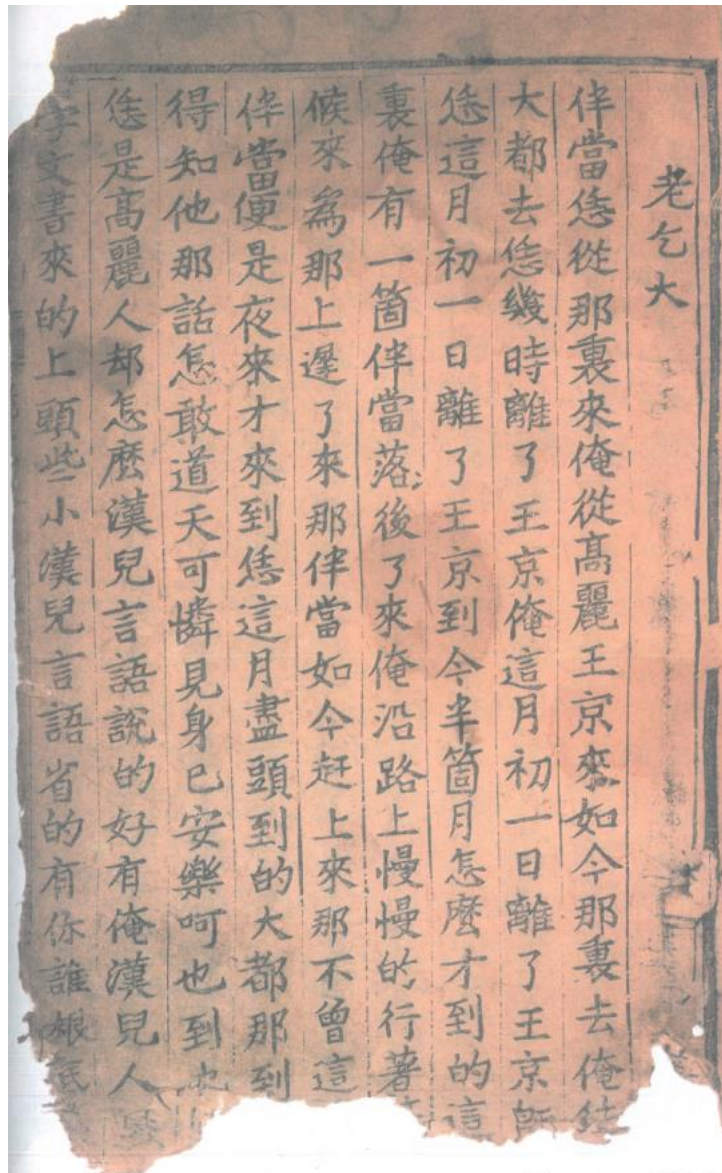 老乞大
伴當恁從那裏來俺從高麗王京來如今那裏去俺
大都去恁幾時離了王京俺這月初一日離了王京
恁這月初一日離了王京到今半箇月怎麽才到的這
裏俺有一箇伴當落後了來俺沿路上慢慢的行著
候來爲那上遲了來那伴當如今赶上來那不曾這
伴當便是夜來才來到恁這月盡頭到的大都那到
得知他那話怎敢道天可憐見身已安樂呵也到也
恁是高麗人却怎麽漢兒言語說的好有俺漢兒人
字文書來的上頭些小漢兒言語省的有你誰根底